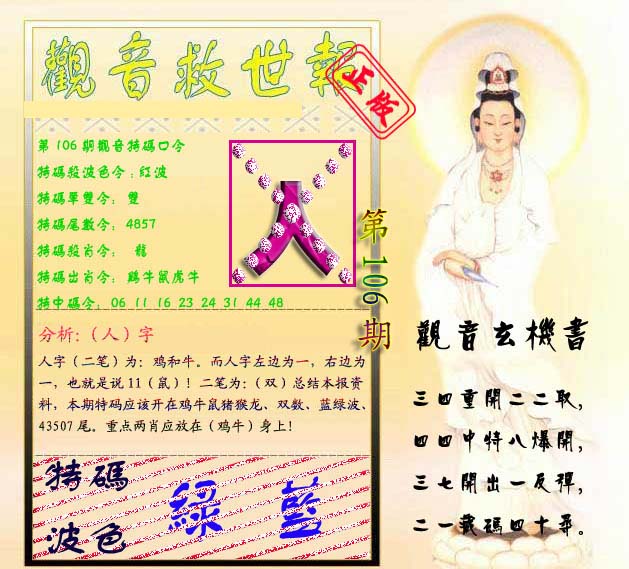 觀音救世報
正版
第 106 期觀音特碼口令
特碼殺波色令：紅波
特碼單雙令： 雙
特碼尾數令： 4857
特碼殺肖令： 龍
特碼出肖令： 鷄牛鼠虎牛
特中碼令： 06 11 16 23 24 31 44 48
人
第106期
分析:（人）字
人字（二笔）为：鸡和牛。而人字左边为一，右边为
一，也就是说 11（鼠）！二笔为：（双）总结本报资
料，本期特码应该开在鸡牛鼠猪猴龙、双数、蓝绿波、
43507 尾。重点两肖应放在（鸡牛）身上！
特碼
波色
綠 藍
觀音玄機書
三四重開二二取，
四四中特八爆開，
三七開出一反彈，
二一載碼四十尋。